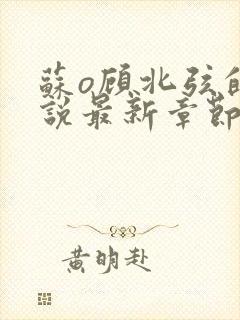 蘇o顾北弦的
說最新章節
黄明赴